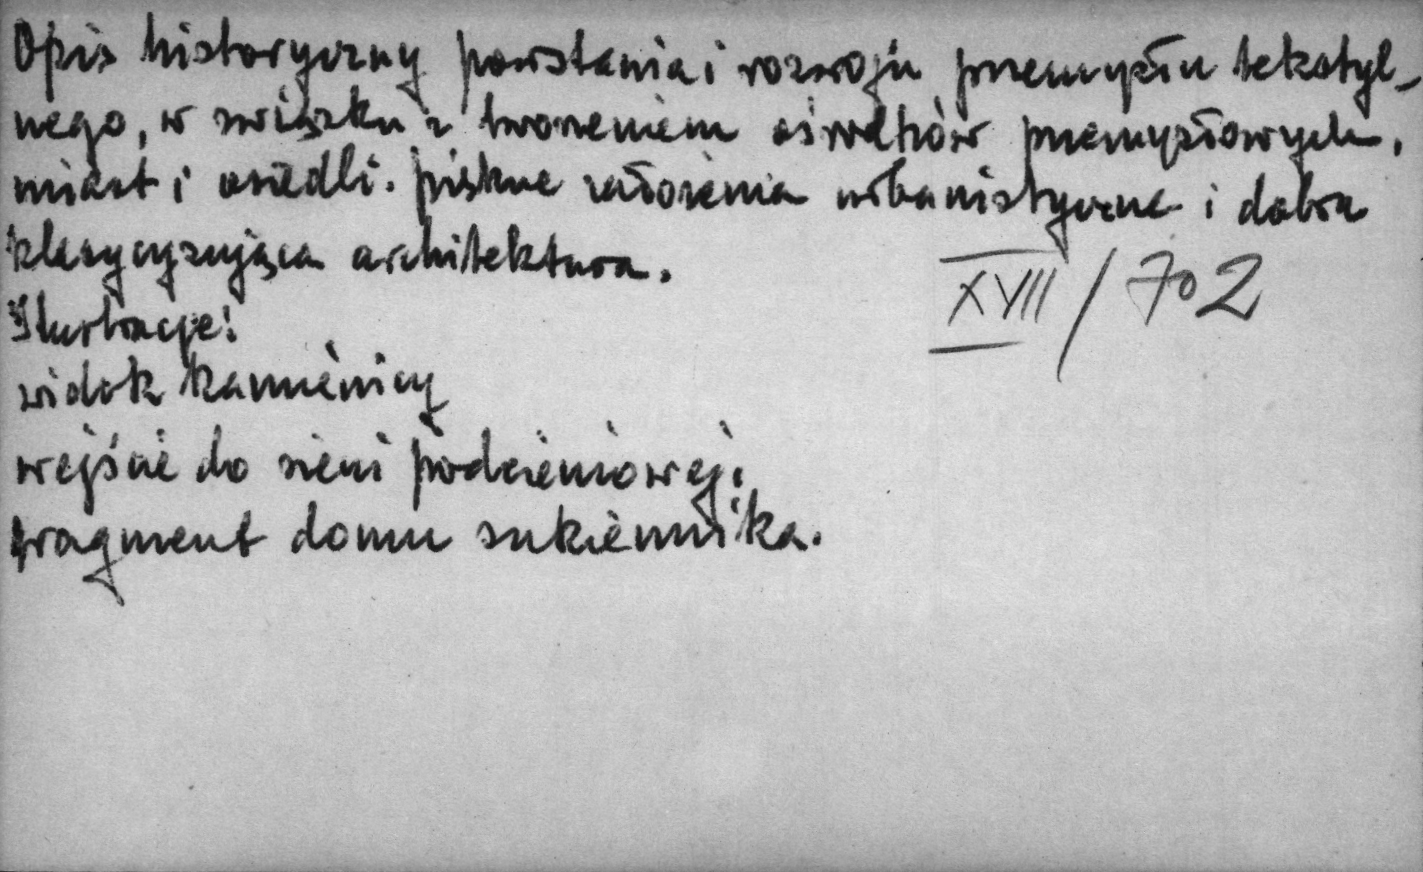 Opis historyczny powstania i rozwoju przemysłu tekstyl-
nego, w związku z tworzeniem ośrodków przemysłowych,
miast i osiedli. piękne założenia urbanistyczne i dobra
klasycyzująca architektura.
XVIII / 702
Ilustracje:
widok kamienicy
wejście do sieni podcieniowej;
fragment domu sukiennika.